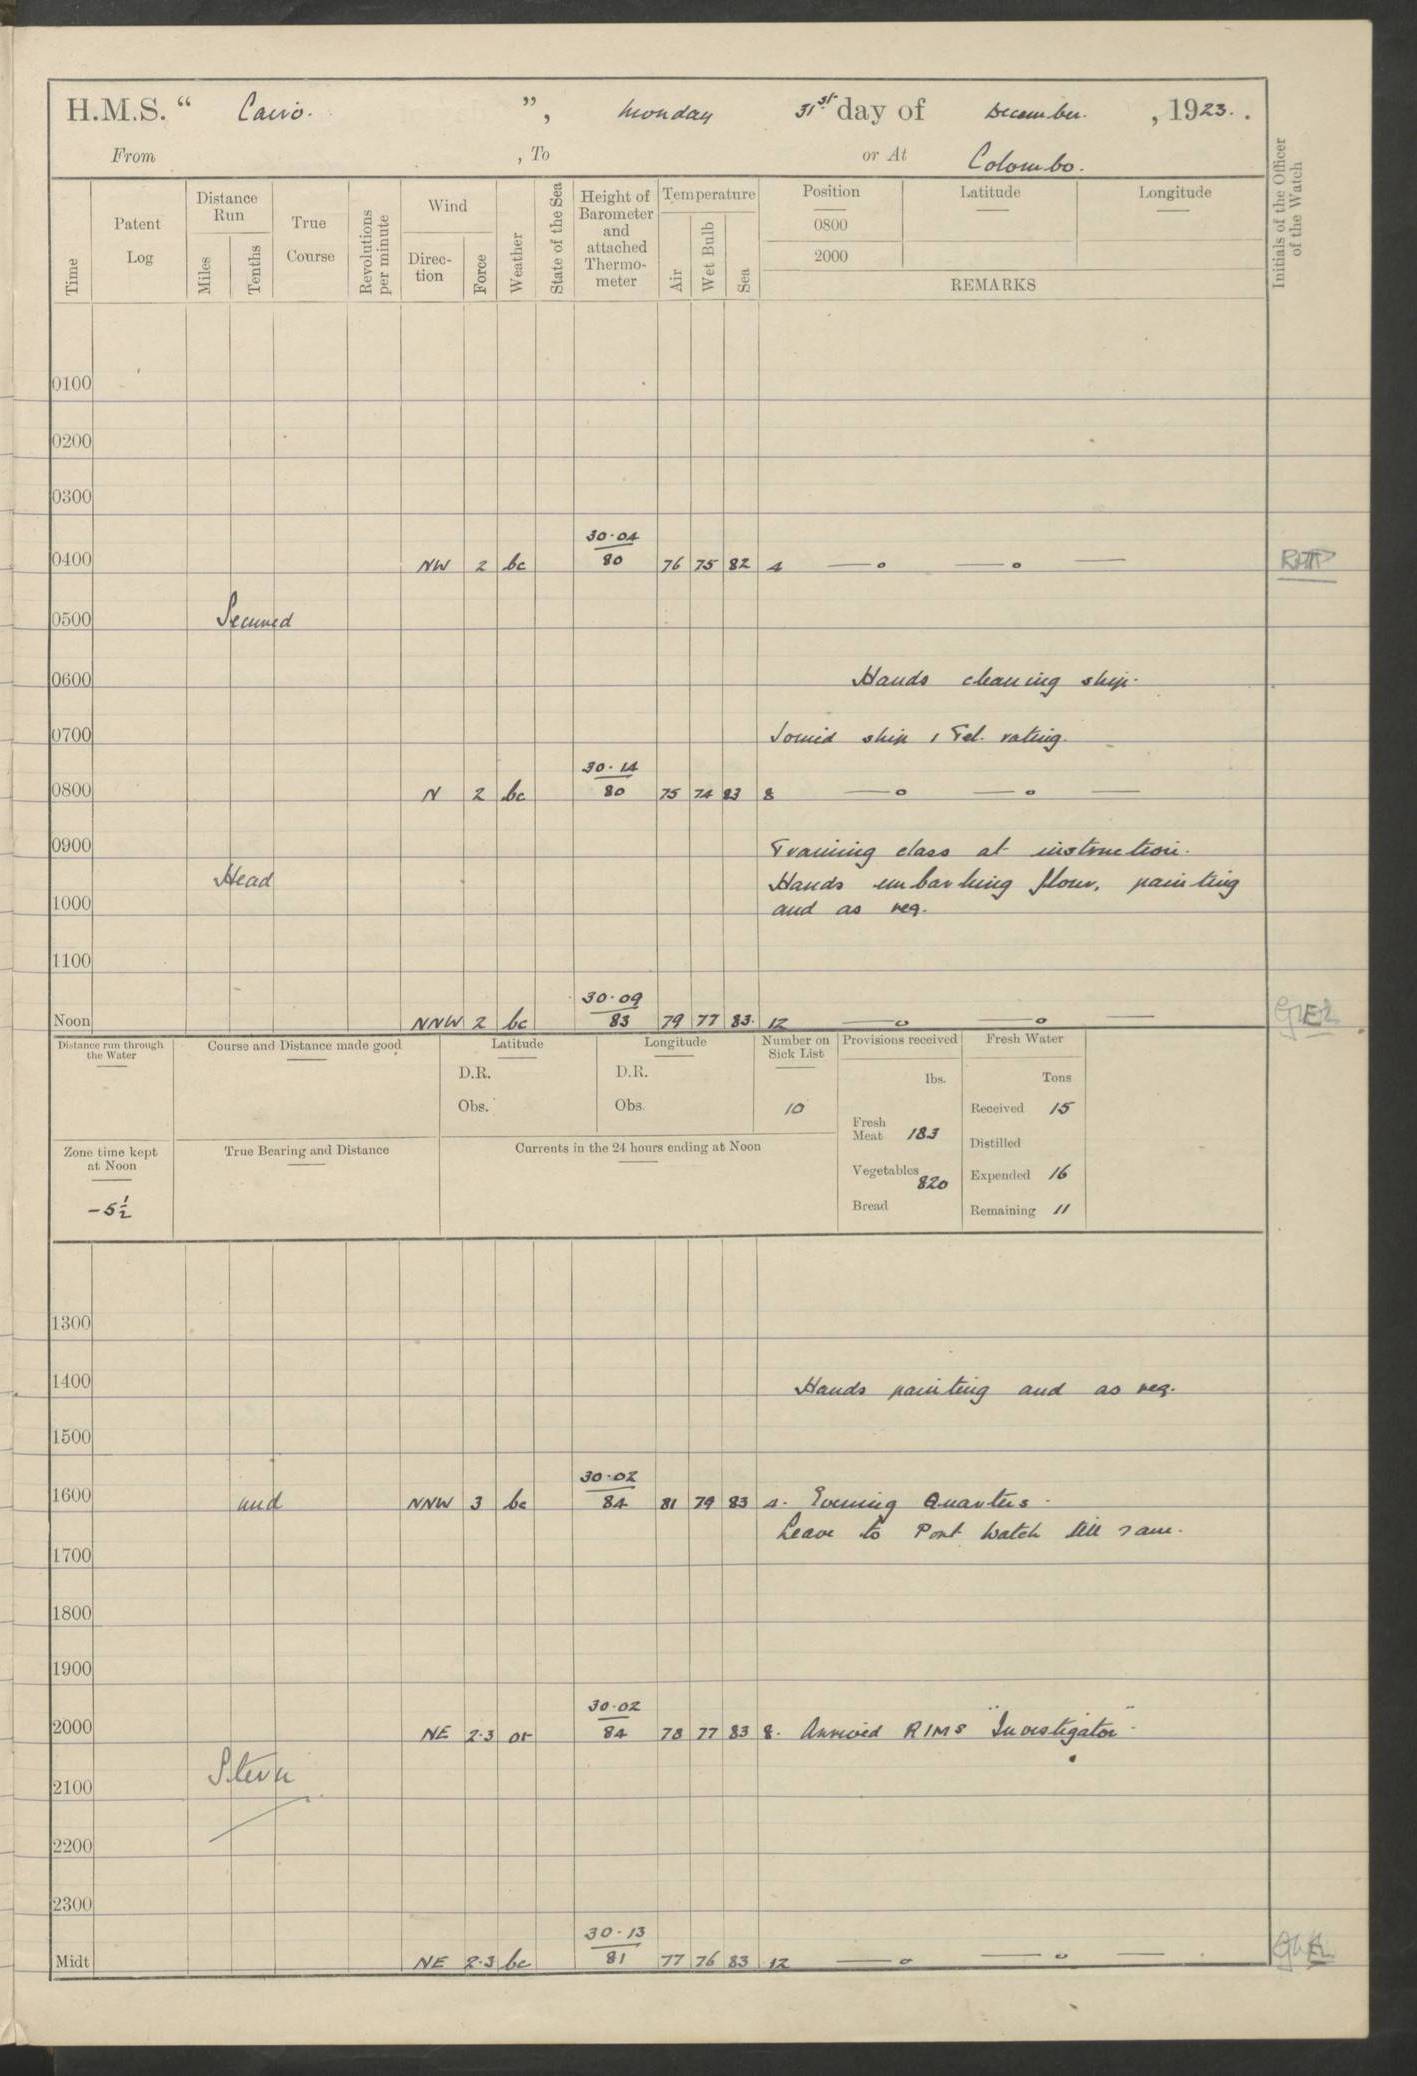 H.M.S. “ Cairo. ”, Monday 31st day of December. , 1923. .
From , To or At Colombo.
Time Patent Log Distance Run Miles Tenths True Course Revolutions per minute Wind Direc- tion Force Weather State of the Sea Height of Barometer and attached Thermo- meter Temperature Air Wet Bulb Sea Position Latitude Longitude
0800
2000
REMARKS
Initials of the Officer of the Watch
0100
0200
0300
30.04
0400 NW 2 bc 80 76 75 82 4 — o — o —
0500 Secured
0600 Hands cleaning ship.
0700 Joined ship 1 Tel. rating.
30.14
0800 N 2 bc 80 75 74 83 8 — o — o —
0900 Training class at instruction.
Head Hands embarking flour, painting
1000 and as req.
1100
30.09
Noon NNW 2 bc 83 79 77 83. 12 — o — o —
Distance run through the Water Course and Distance made good Latitude Longitude Number on Sick List Provisions received Fresh Water
D.R. D.R. lbs. Tons
Obs. Obs. 10 Received 15
Fresh Meat 183
Zone time kept at Noon True Bearing and Distance Currents in the 24 hours ending at Noon Distilled
Vegetables 820 Expended 16
-5½ Bread Remaining 11
1300
1400 Hands painting and as req.
1500
30.02
1600 and NNW 3 bc 84 81 79 83 4. Evening Quarters.
Leave to Port Watch till 7 am.
1700
1800
1900
30.02
2000 NE 2.3 or 84 78 77 83 8. Arrived RIMS "Investigator".
Stern
2100
2200
2300
30.13
Midt NE 2.3 bc 81 77 76 83 12 — o — o —